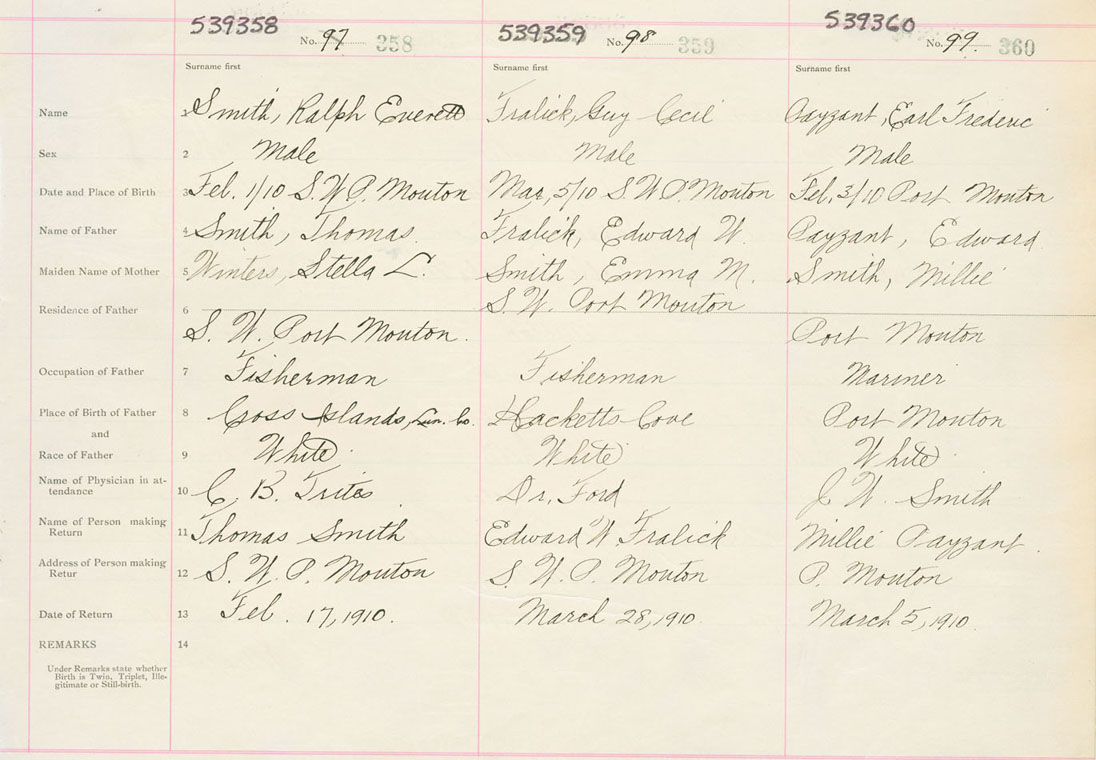 539358 539359 539360
No. 97 358 No. 98 359 No. 99 360
Surname first Surname first Surname first
Name Smith, Ralph Everett Fralick, Guy Cecil Payzant, Earl Frederic
Sex 2 Male Male Male
Date and Place of Birth 3 Feb. 1/10 S.W.P. Mouton Mar, 5/10 S.W.P. Mouton Feb, 3/10 Port Mouton
Name of Father 4 Smith, Thomas. Fralick, Edward W. Payzant, Edward
Maiden Name of Mother 5 Winters, Stella L. Smith, Emma M. Smith, Millie
S. W. Port Mouton
Residence of Father 6
S. W. Port Mouton. Port Mouton
Occupation of Father 7 Fisherman Fisherman Mariner
Place of Birth of Father 8 Cross Islands, Lun. Co. Hacketts Cove Port Mouton
and
Race of Father 9 White White White
Name of Physician in at-
tendance 10 C. B. Trites Dr. Ford J. W. Smith
Name of Person making
Return 11 Thomas Smith Edward W. Fralick Millie Payzant.
Address of Person making
Retur 12 S. W. P. Mouton S. W. P. Mouton P. Mouton
Date of Return 13 Feb. 17, 1910. March 28, 1910. March 5, 1910.
REMARKS 14
Under Remarks state whether
Birth is Twin, Triplet, Ille-
gitimate or Still-birth.